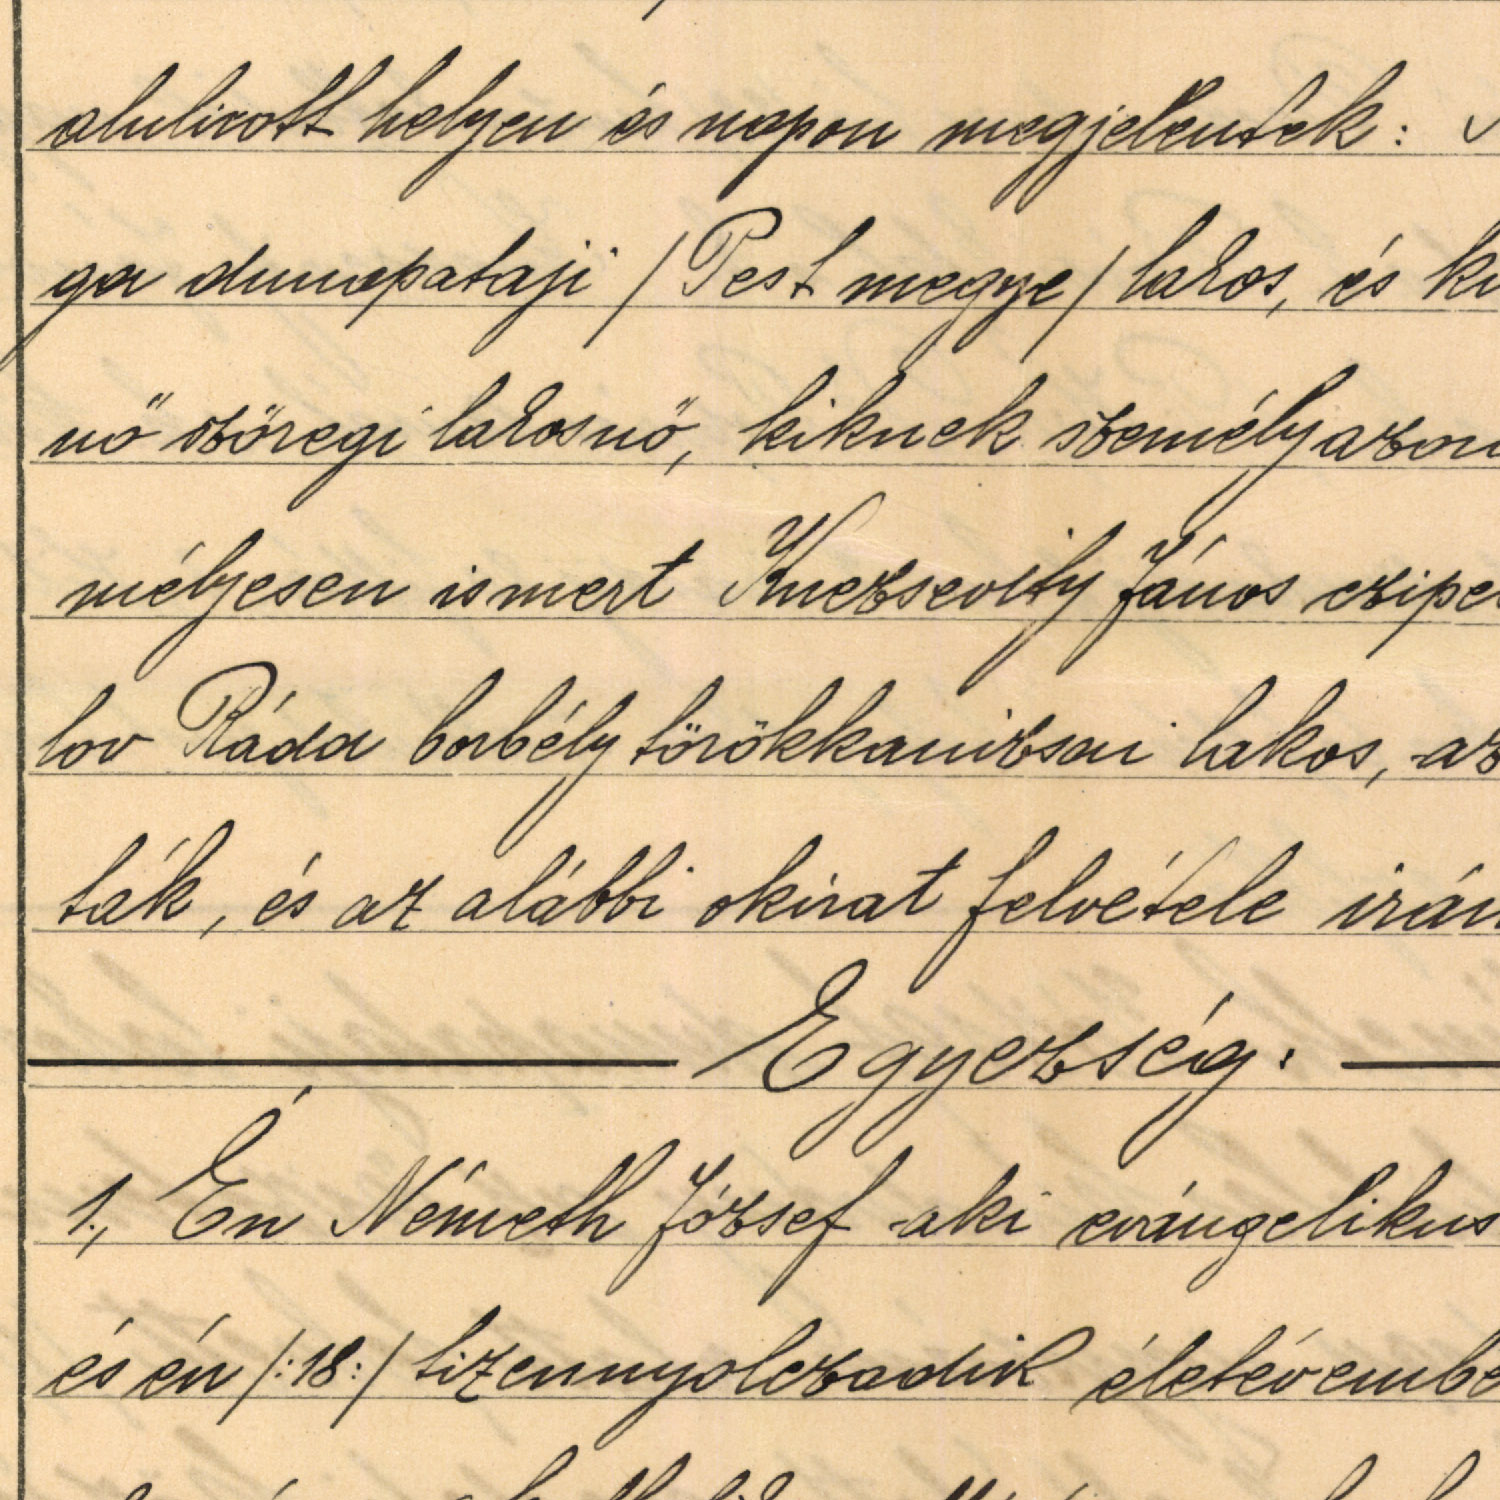 alulirott helyen és napon megjelentek:
ga dunapataji /Pest megye/ lakos, és ki
nő szőregi lakosnő, kiknek személyazon
mélyesen ismert Knezsevity János czipe
lov Ráda borbély törökkanizsai lakos, az
ták, és az alábbi okirat felvétele irán
Egyezség.
1., Én Németh József aki evángelikus
és én /:18:/ tizennyolczadik életévembe